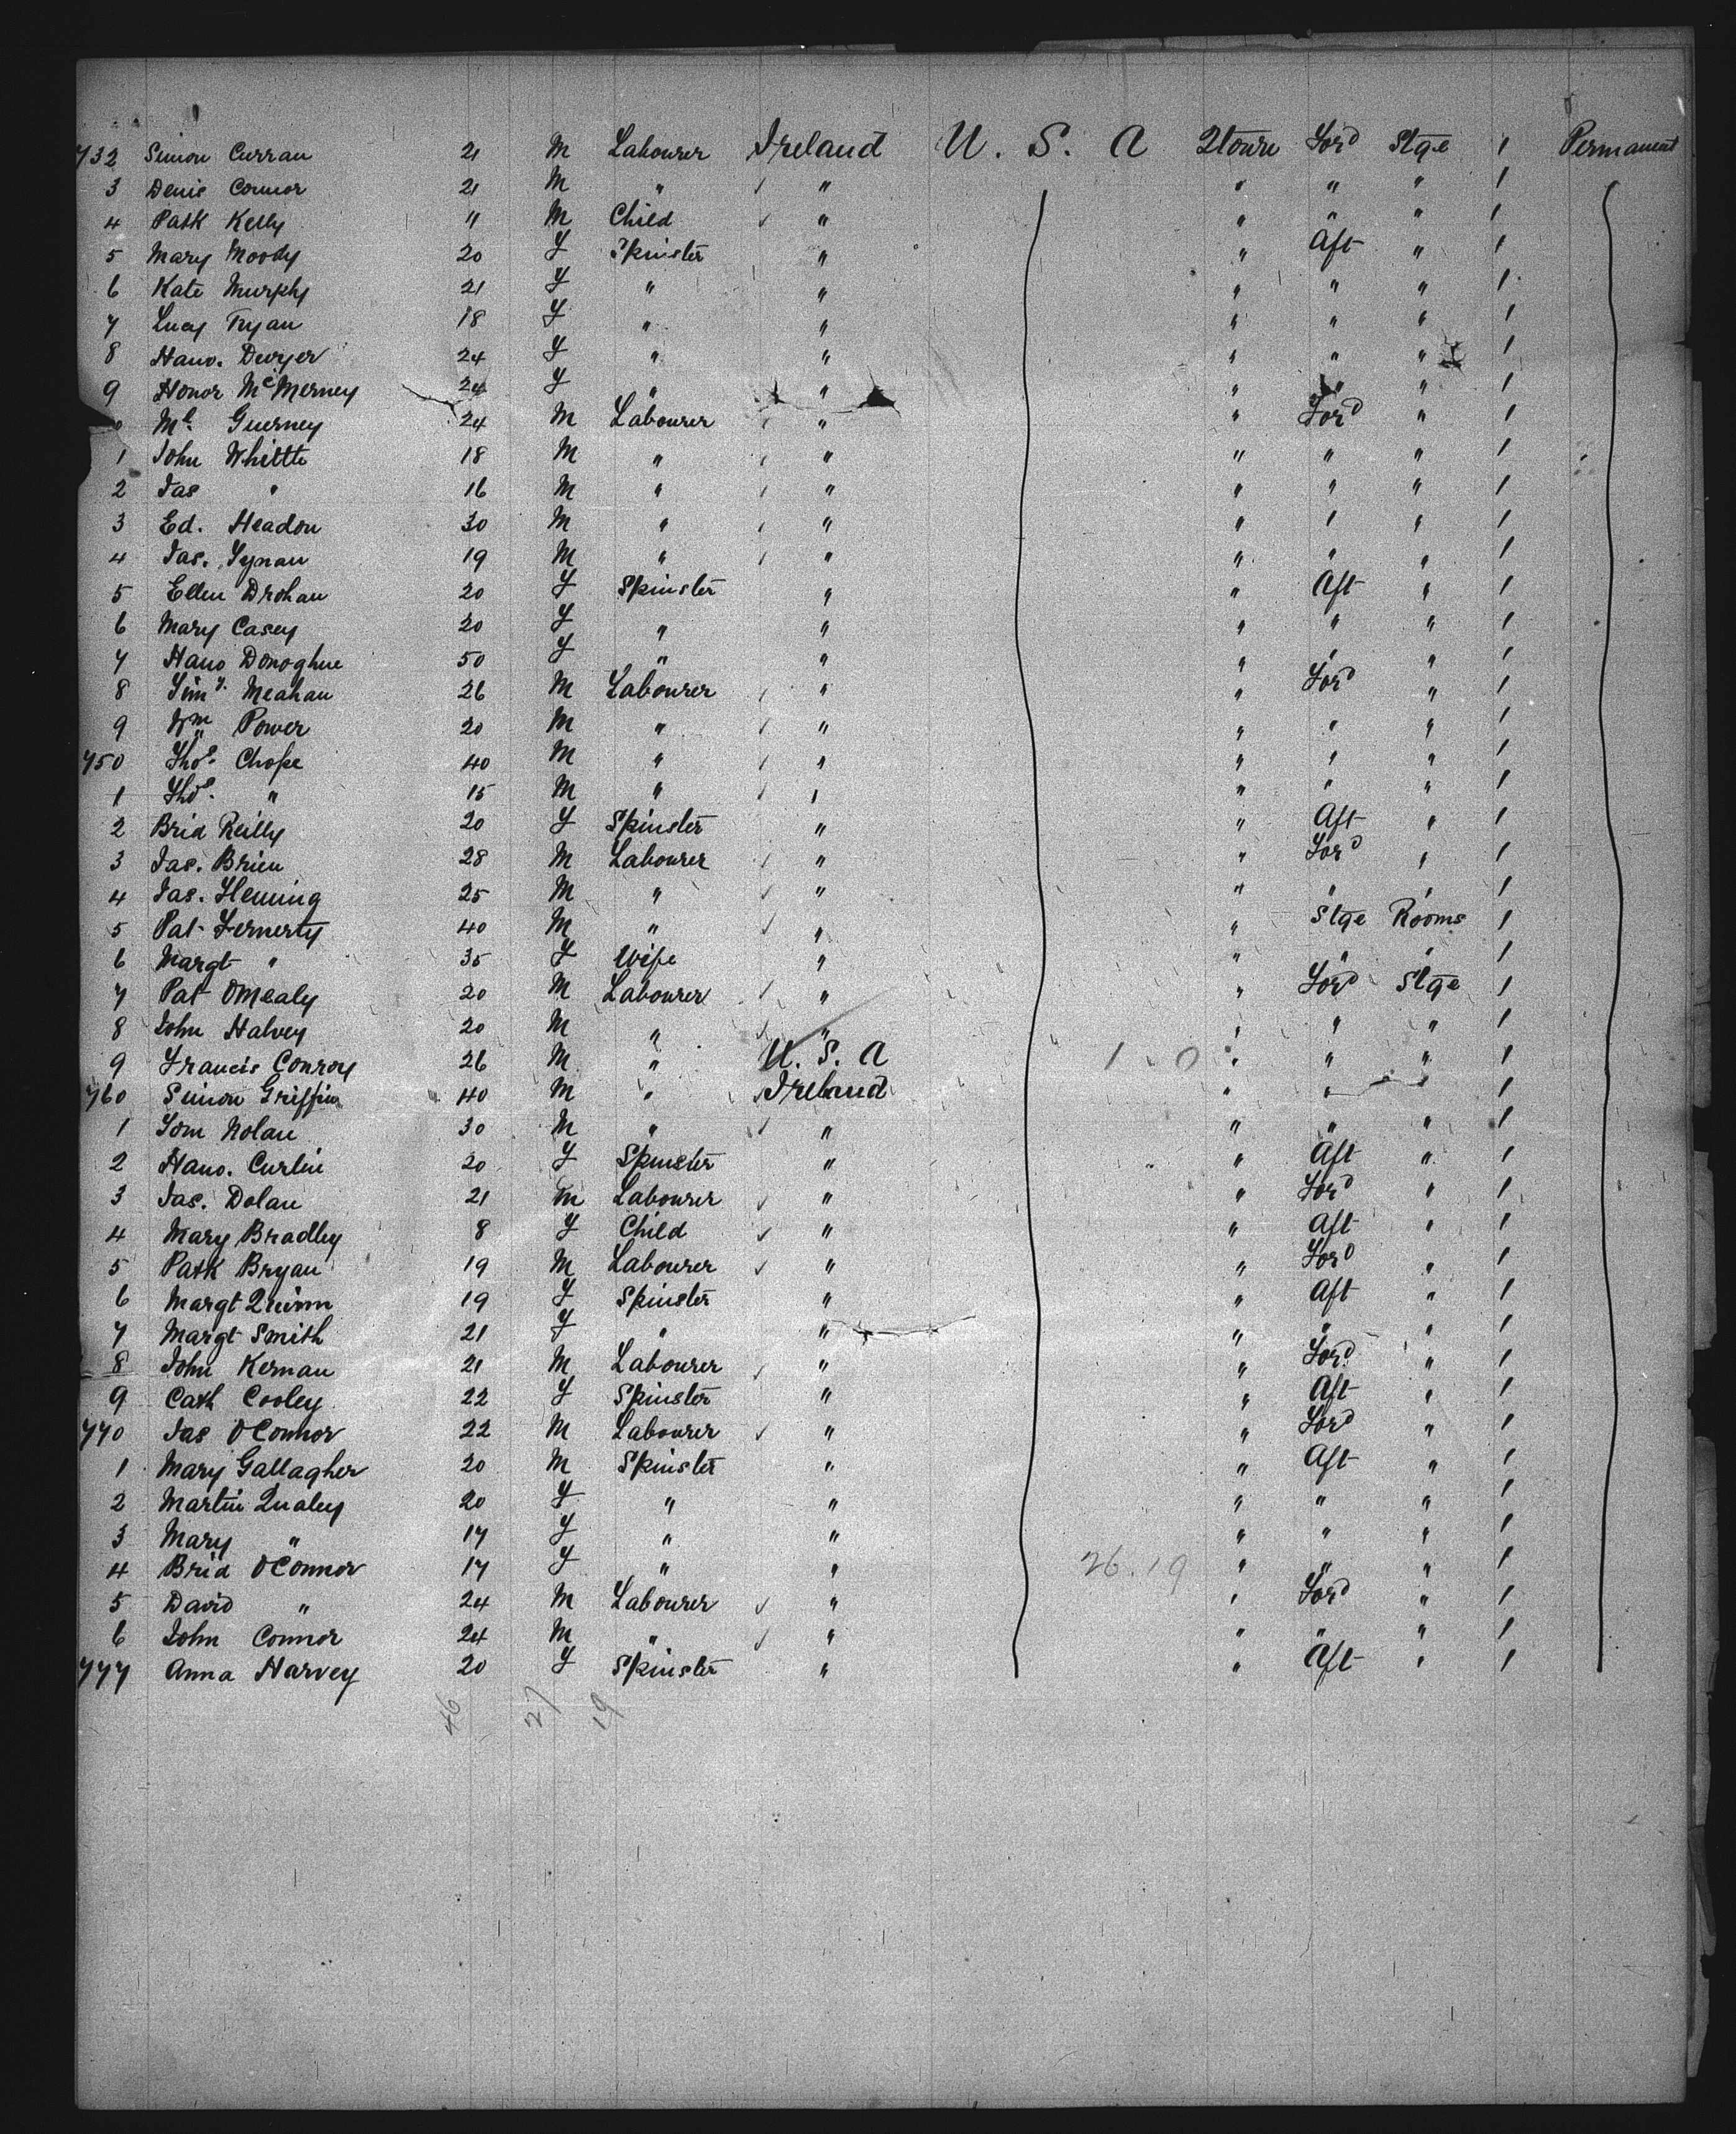 732 Simon Curran 21 M Labourer Ireland U. S. A 2toun Ford Stge 1 Permanent
3 Denis Connor 21 M " " " " " 1
4 Patk Kelly 11 M Child " " " " 1
5 Mary Moody 20 F Spinster " " Aft " 1
6 Kate Murphy 21 F " " " " " 1
7 Lucy Tryan 18 F " " " " " 1
8 Hano. Dwyer 24 F " " " " " 1
9 Honor McMerney 24 F " " " " " 1
0 Ml. Guerney 24 M Labourer " " Ford " 1
1 John Whittle 18 M " " " " " 1
2 Jas " 16 M " " " " " 1
3 Ed. Headon 30 M " " " " " 1
4 Jas. Tynan 19 M " " " " " 1
5 Ellen Drohan 20 F Spinster " " Aft " 1
6 Mary Casey 20 F " " " " " 1
7 Hano Donoghue 50 F " " " " " 1
8 Timy. Meahan 26 M Labourer " " Ford " 1
9 Wm Power 20 M " " " " " 1
750 Thos. Chope 40 M " " " " " 1
1 Thos. " 15 M " " " " " 1
2 Brid Reilly 20 F Spinster " " Aft " 1
3 Jas. Brien 28 M Labourer " " Ford " 1
4 Jas. Fleming 25 M " " " " " 1
5 Pat Fernerty 40 M " " " Stge Rooms 1
6 Margt " 35 F Wife " " " " 1
7 Pat OMealy 20 M Labourer " " Ford Stge 1
8 John Halvey 20 M " " " " " 1
9 Francis Conroy 26 M " U. S. A 1 . 0 " " " 1
760 Simon Griffin 40 M " Ireland " " 1
1 Tom Nolan 30 M " " " " " 1
2 Hano. Curlin 20 F Spinster " " Aft " 1
3 Jas. Dolan 21 m Labourer " " Ford " 1
4 Mary Bradley 8 F Child " " Aft " 1
5 Patk Bryan 19 M Labourer " " Ford " 1
6 Margt Quinn 19 F Spinster " " Aft " 1
7 Margt Smith 21 F " " " " " 1
8 John Kernan 21 M Labourer " " Ford " 1
9 Cath Cooley 22 F Spinster " " Aft " 1
770 Jas OConnor 22 M Labourer " " Ford " 1
1 Mary Gallagher 20 M Spinster " " Aft " 1
2 Martin Qualey 20 F " " " " " 1
3 Mary " 17 F " " " " " 1
4 Brid OConnor 17 F " " 26.19 " " " 1
5 David " 24 M Labourer " " Ford " 1
6 John Connor 24 M " " " " " 1
777 Anna Harvey 20 F Spinster " " Aft " 1
46 27 19